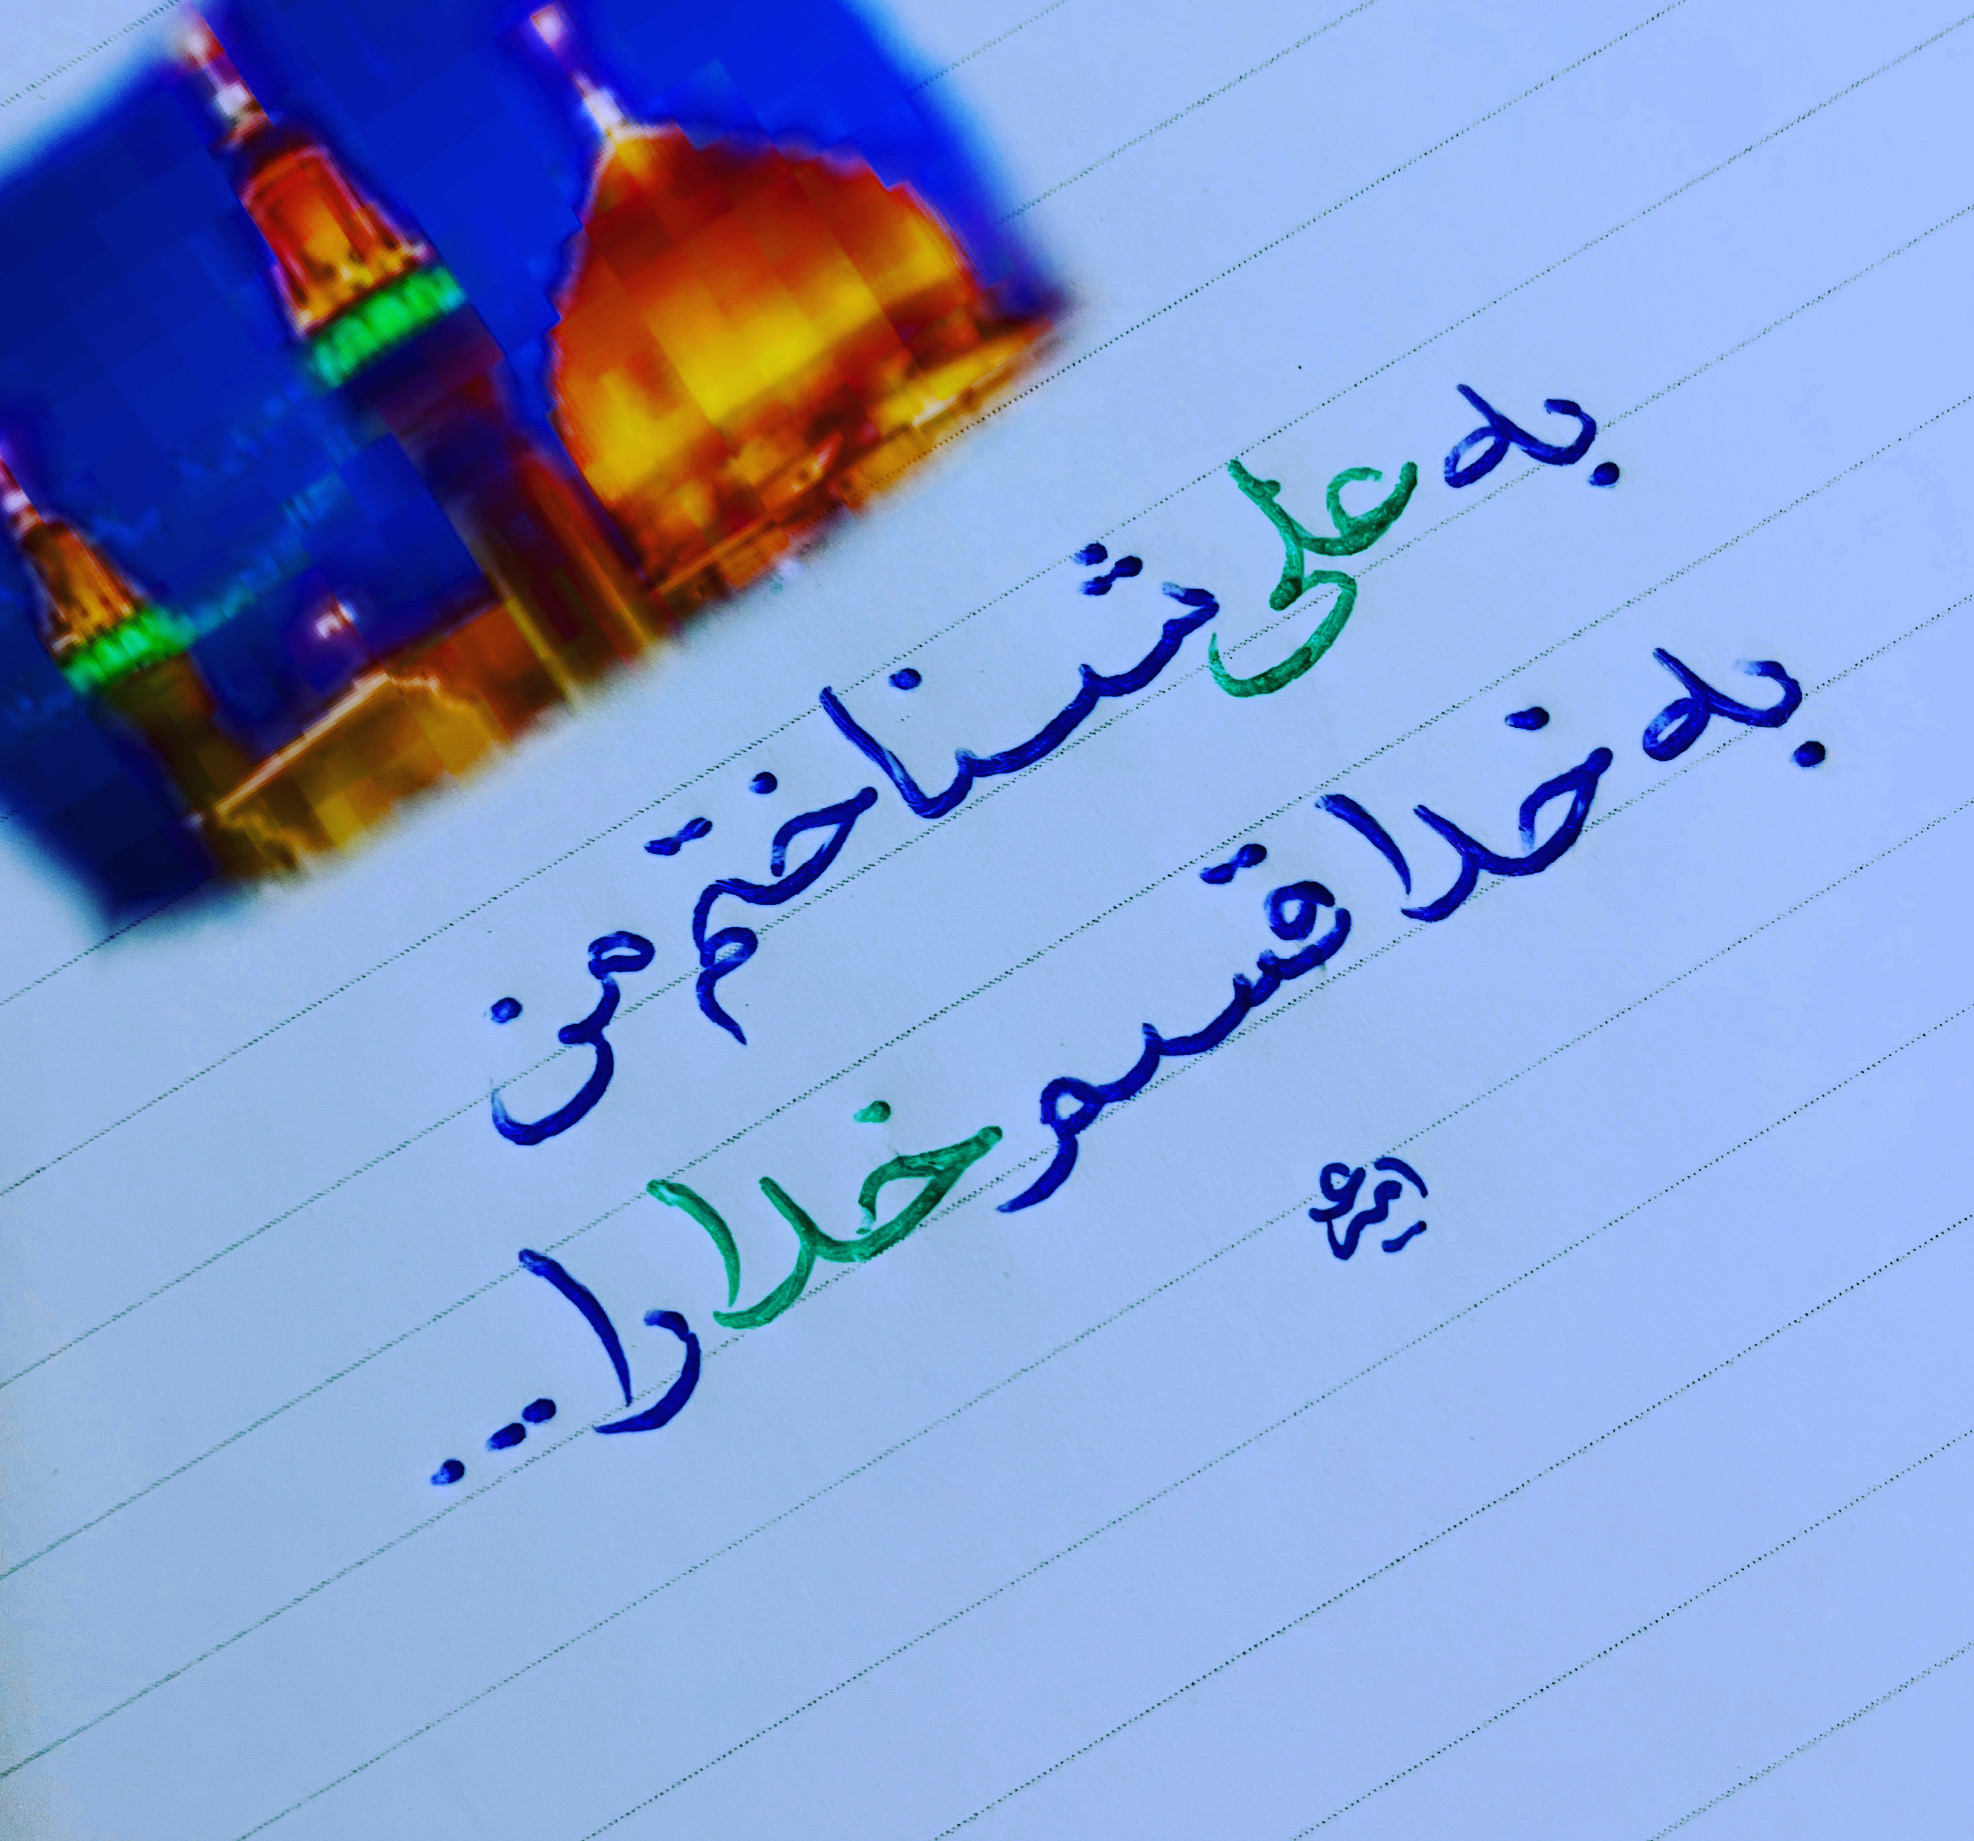 به علی شناختم من
به خدا قسم خدا را...